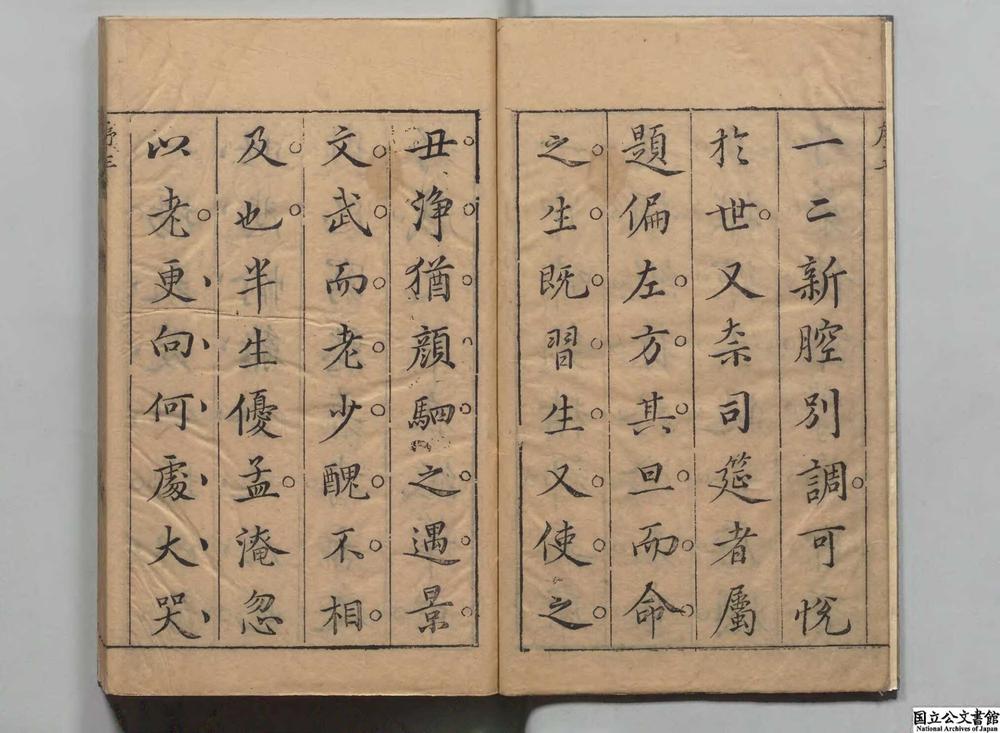 一二新腔別調可悅
於世又柰司筵者屬
題偏左方其旦而命
之生既習生又使之
丑淨猶顔駟之遇景
文武而老少醜不相
及也半生優孟淹忽
以老更向何處大哭
序三
国立公文書館
National Archives of Japan